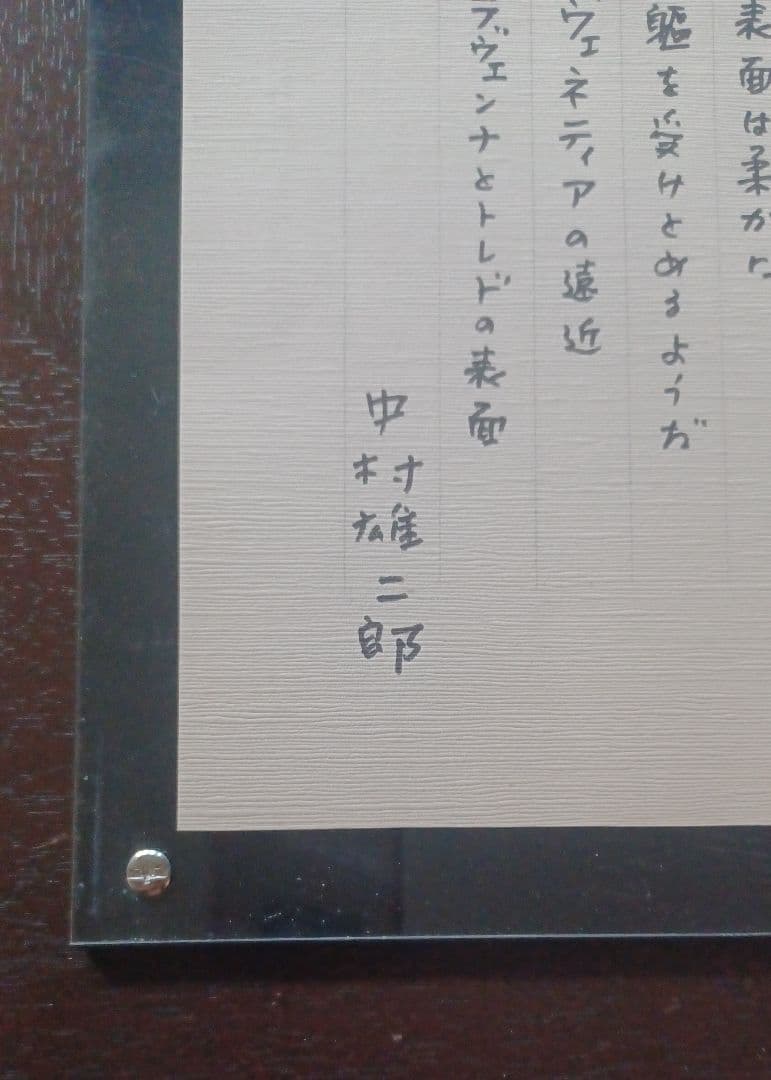 表面は柔かに
軀を受けとめるようだ
ヴェネティアの遠近
ラヴェンナとトレドの表面
中村雄二郎